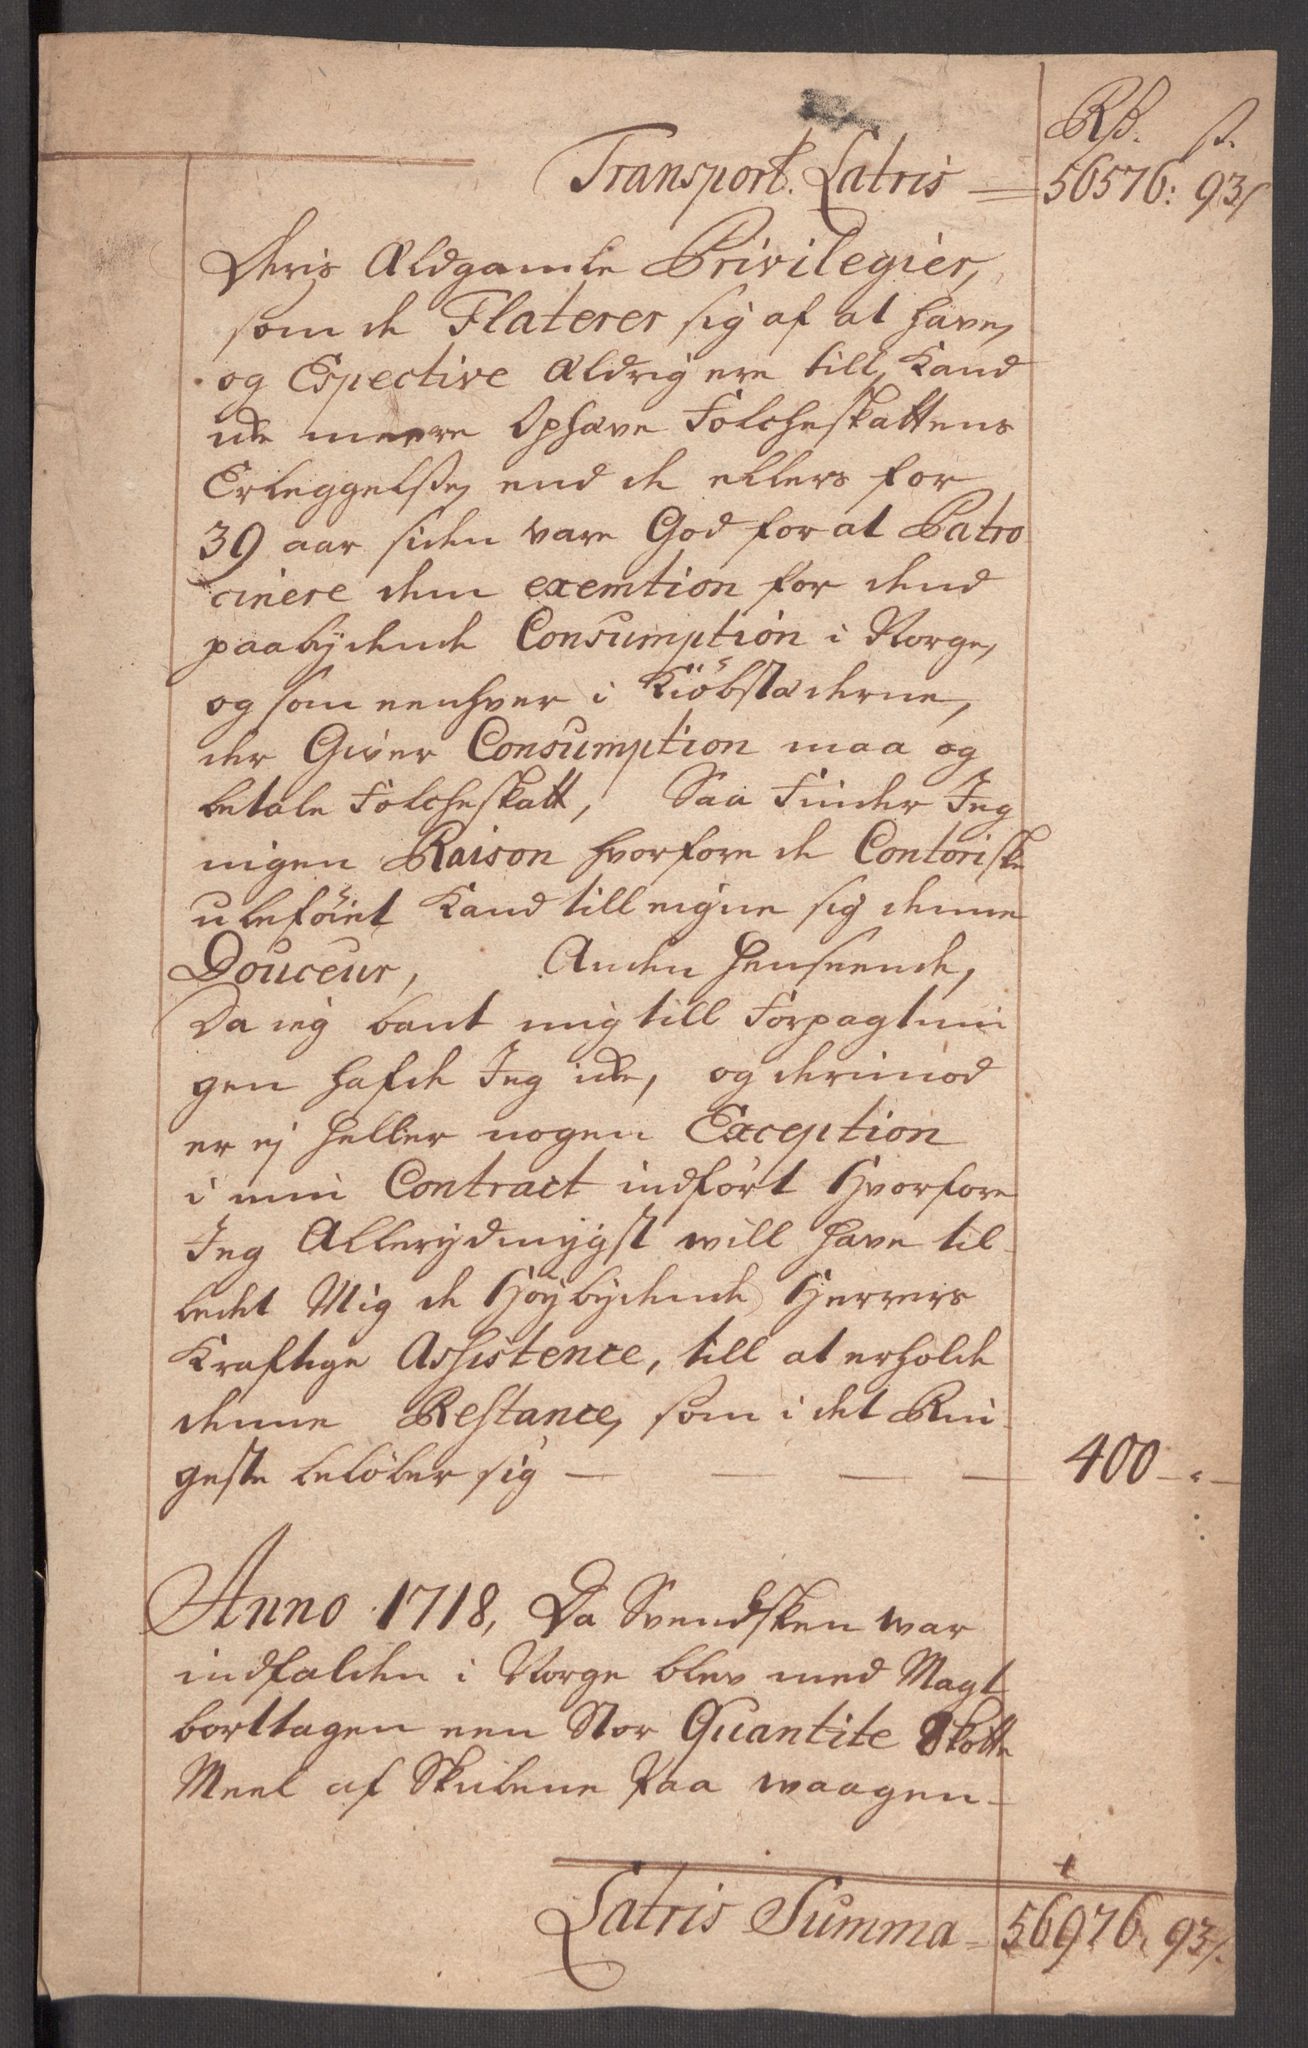 Rd. s.
Transport. Latris 56576: 93/
Deris Ældgamle Privilegier,
som de Flaterer sig af at have,
og Espective Aldrig ere till, Kand
icke meere Ophæve Folcheskattens
Erleggelsse, end de ellers for
39 aar siden vare God for at Patro
cinere dem exemtion for dend
paabydende Consumption i Norge,
og som eenhver i Kiöbstæderne,
der Giver Consumption maa og
betale Folcheskatt, Saa Finder Jeg
ingen Raison hvorfore de Contoriske
ubeföiet Kand till eigne sig denne
Douceur, Anden henseende,
Da ieg bant mig till Forpagtnin
gen hafde Jeg icke, og derimod
er ej heller nogen Exception
i min Contract indfört Hvorfore
Jeg Allerydmygst will have til
bedet Mig de Höybydende Herrers
Kraftige Assistence, till at erholde
denne Restance, som i det Rin-
geste belöber sig — — — — 400 - " -
Anno 1718, Da Svendsken war
indfalden i Norge blev med Magt
borttagen een Stor Quantite
Meel af Skibene Paa waagen
Latris Summa 56976. 93/.